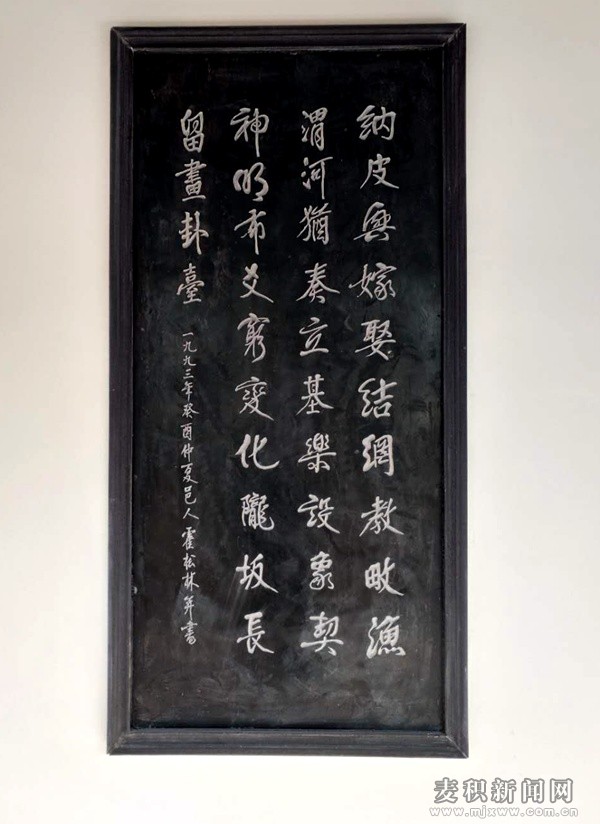 納皮興嫁娶結網教畋漁
渭河猶奏立基樂設象契
神明布爻窮變化隴坂長
留畫卦臺
一九九三年癸酉仲夏邑人霍松林并書
麦积新闻网
www.mjxww.com.cn